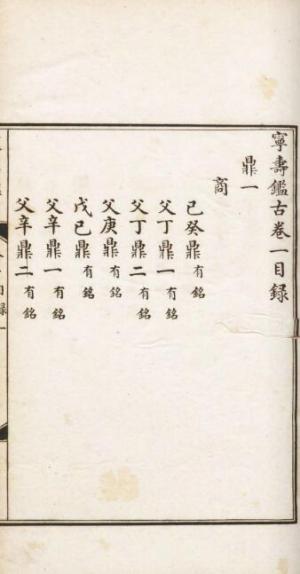 寧壽鑑古卷一目錄
鼎一
商
己癸鼎有銘
父丁鼎一有銘
父丁鼎二有銘
父庚鼎有銘
戊己鼎有銘
父辛鼎一有銘
父辛鼎二有銘